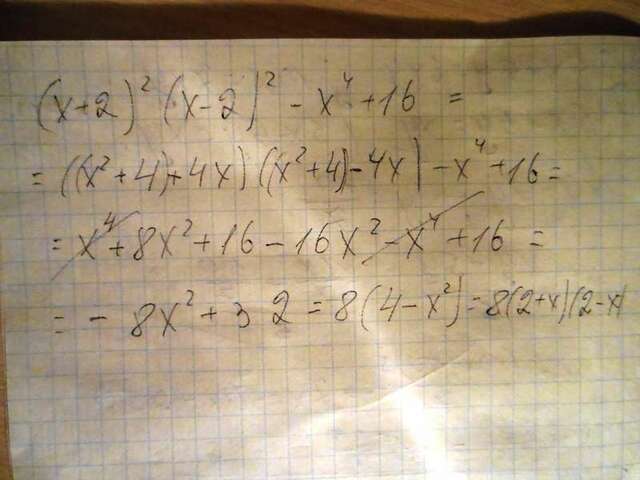 (x+2)² (x-2)² - x⁴ + 16 =
= ((x²+4)+4x) ((x²+4)-4x) - x⁴ + 16 =
= x⁴ + 8x² + 16 - 16x² - x⁴ + 16 =
= - 8x² + 32 = 8(4-x²) = 8(2+x)(2-x)